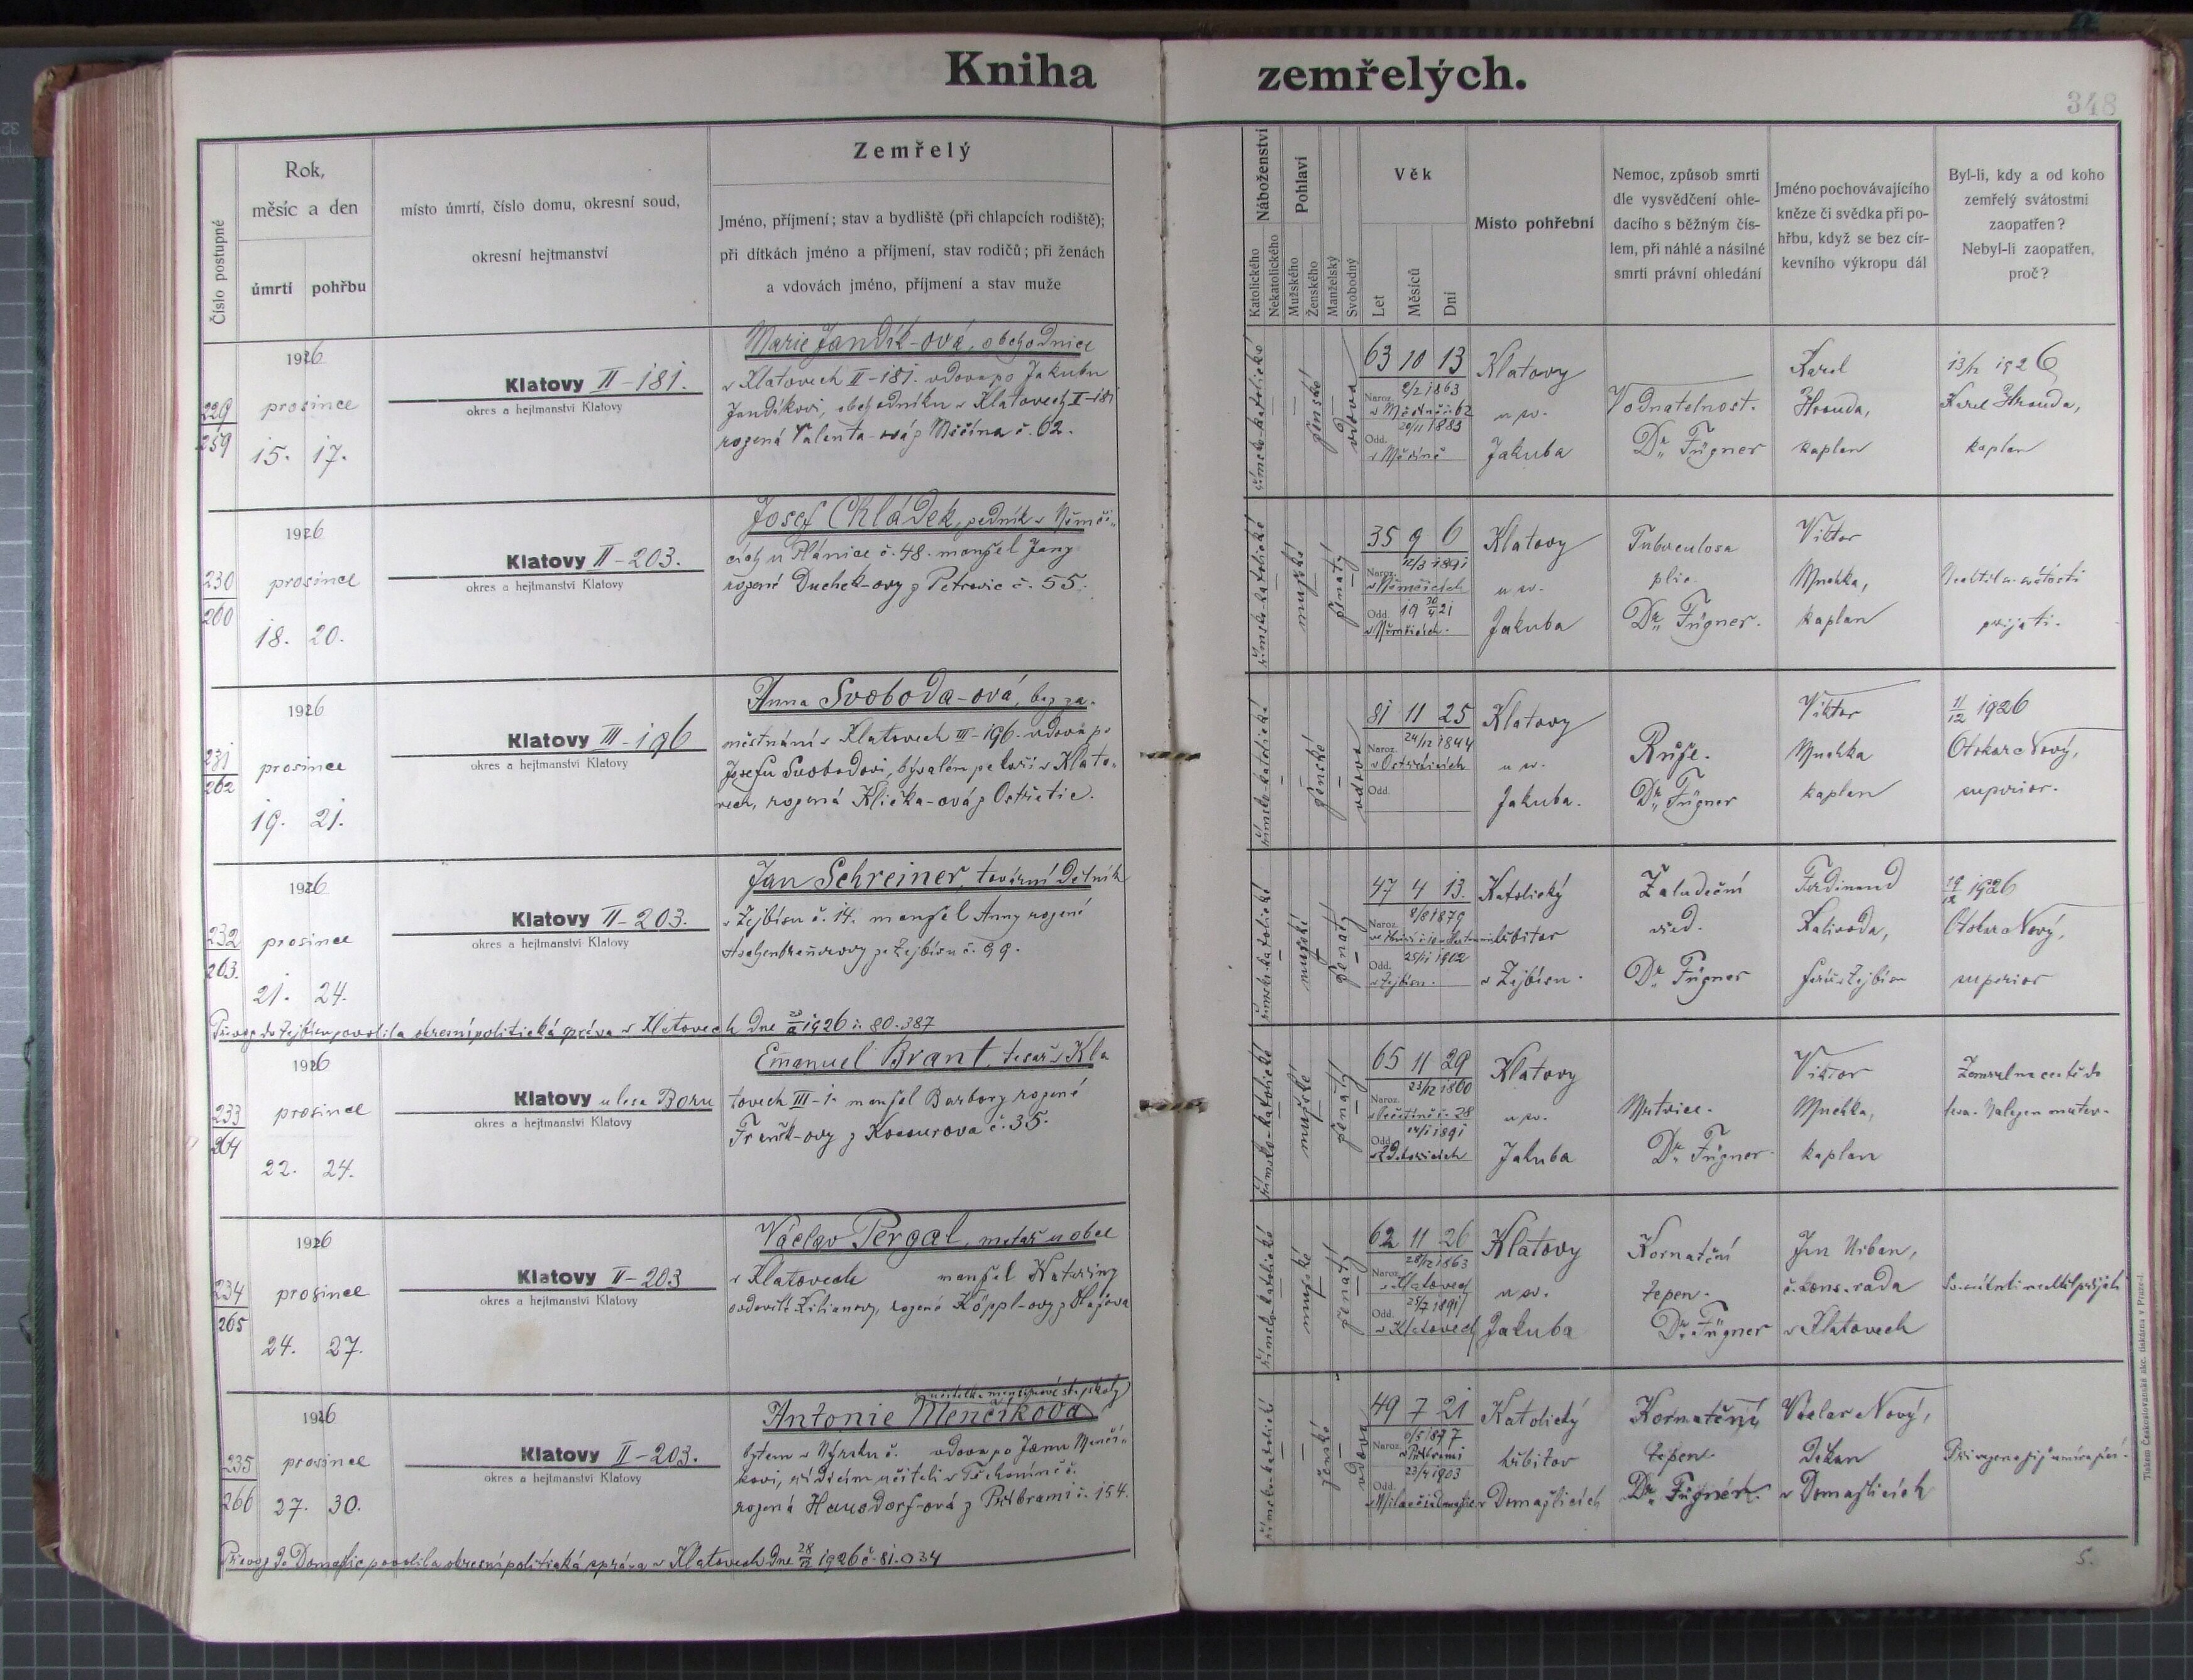 Kniha zemřelých.
348
Číslo postupné
Rok,
měsíc a den
úmrtí pohřbu
místo úmrtí, číslo domu, okresní soud,
okresní hejtmanství
Zemřelý
Jméno, příjmení; stav a bydliště (při chlapcích rodiště);
při dítkách jméno a příjmení, stav rodičů; při ženách
a vdovách jméno, příjmení a stav muže
Náboženství
Katolického
Nekatolického
Pohlaví
Mužského
Ženského
Manželský
Svobodný
Věk
Let
Měsíců
Dní
Místo pohřební
Nemoc, způsob smrti
dle vysvědčení ohle-
dacího s běžným čís-
lem, při náhlé a násilné
smrti právní ohledání
Jméno pochovávajícího
kněze či svědka při po-
hřbu, když se bez cír-
kevního výkropu dál
Byl-li, kdy a od koho
zemřelý svátostmi
zaopatřen?
Nebyl-li zaopatřen,
proč?
229
259
1926
prosince
15. 17.
Klatovy II-181.
okres a hejtmanství Klatovy
Marie Jandík-ová, obchodnice
v Klatovech II-181. vdova po Jakubu
Jandíkovi, obchodníku v Klatovech II-181
rozená Valenta-ová z Měčína č. 62.
římsko-katolické
ženské
vdova
63 10 13
Naroz. 2/2 1863
č. 62
Odd. 20/11 1883
v Měčíně
Klatovy
u sv.
Jakuba
Vodnatelnost.
Dr. Fügner
Karel
Hrouda,
kaplan
13/12 1926
Karel Hrouda,
kaplan
230
260
1926
prosince
18. 20.
Klatovy II-203.
okres a hejtmanství Klatovy
Josef Chládek, v Němči-
cích u Plánice č. 48. manžel Jany
rozené Duchek-ovy z Petrovic č. 55.
římsko-katolické
mužské
ženatý
35 9 6
Naroz. 12/3 1891
v Němčicích
Odd. 19 30/4 21
v Němčicích.
Klatovy
u sv.
Jakuba
Tuberculosa
plic.
Dr. Fügner.
Viktor
Muchka,
kaplan
Nechtěl sv. svátosti
přijati.
231
262
1926
prosince
19. 21.
Klatovy III-196
okres a hejtmanství Klatovy
Anna Svoboda-ová, bez za-
městnání v Klatovech III-196. vdova po
Josefu Svobodovi, bývalém pekaři v Klato-
vech, rozená Klička-ová z Ostřetic.
římsko-katolické
ženské
vdova
81 11 25
Naroz. 24/12 1844
v Ostřeticích
Odd.
Klatovy
u sv.
Jakuba.
Růže.
Dr. Fügner
Viktor
Muchka
kaplan
11/12 1926
Otokar Nový,
superior.
232
263.
1926
prosince
21. 24.
Klatovy II-203.
okres a hejtmanství Klatovy
Jan Schreiner, tovární dělník
v Zejbišu č. 14. manžel Anny rozené
ze Zejbišu č. 99.
Převoz do Zejbišu povolila okresní politická správa v Klatovech dne 23/12 1926 č. 80.387
římsko-katolické
mužské
ženatý
47 4 13.
Naroz. 8/8 1879
Odd. 25/11 1902
v Zejbišu.
Katolický
hřbitov
v Zejbišu.
Žaludeční
vřed.
Dr. Fügner
Ferdinand
Kalivoda,
farář v Zejbišu
19/12 1926
Otokar Nový,
superior
233
264
1926
prosince
22. 24.
Klatovy u lesa Boru
okres a hejtmanství Klatovy
Emanuel Brant, tesař v Kla
tovech III-1. manžel Barbory rozené
z Kocourova č. 35.
římsko-katolické
mužské
ženatý
65 11 29
Naroz. 23/12 1860
č. 28
Odd. 24/11 1891
Klatovy
u sv.
Jakuba
Mrtvice.
Dr. Fügner.
Viktor
Muchka,
kaplan
Zemřel na cestě do
lesa. Nalezen mrtev.
234
265
1926
prosince
24. 27.
Klatovy II-203
okres a hejtmanství Klatovy
Václav Pergal, metař u obce
v Klatovech manžel Kateřiny
ovdovělé Kilianovy, rozené Köppl-ovy z Hájova
římsko-katolické
mužské
ženatý
62 11 26
Naroz. 28/12 1863
v Klatovech
Odd. 25/7 1891
v Klatovech
Klatovy
u sv.
Jakuba
Kornatění
tepen.
Dr. Fügner
Jan Urban,
č. kons. rada
v Klatovech
Sv. svátosti nechtěl přijati
235
266
1926
prosince
27. 30.
Klatovy II-203.
okres a hejtmanství Klatovy
učitelka menšinové st. školy
Antonie Menčíková
bytem v Nýrsku č. vdova po Janu Menčí-
kovi, řídícím učiteli v
rozená Hausdorf-ová z Příbrami č. 154.
Převoz do Domažlic povolila okresní politická správa v Klatovech dne 28/12 1926 č. 81.034
římsko-katolické
ženské
vdova
49 7 21
Naroz. 6/5 1877
v Příbrami
Odd. 23/4 1903
Katolický
hřbitov
v Domažlicích
Kornatění
tepen.
Dr. Fügner.
Václav Nový,
děkan
v Domažlicích
Přivezena již
Tiskem Českoslovanské akc. tiskárny v Praze.
5.